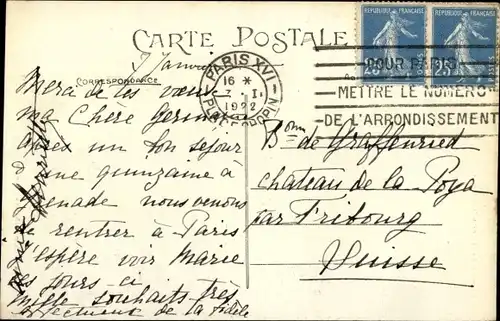 CARTE POSTALE
CORRESPONDANCE
7 Janvier
Merci de tes vœux
ma Chère Germaine
après un bon séjour
d'une quinzaine à
nous venons
de rentrer à Paris
J'espère voir Marie
ces jours-ci
Mille souhaits très
affectueux de la fidèle
REPUBLIQUE FRANÇAISE
REPUBLIQUE FRANÇAISE
25
25
PARIS XVI
16 *
7 - I
1922
PL. CHOPIN
POUR PARIS
METTRE LE NUMERO
DE L'ARRONDISSEMENT
Bonne de Graffenried
château de la Poya
par Fribourg
Suisse